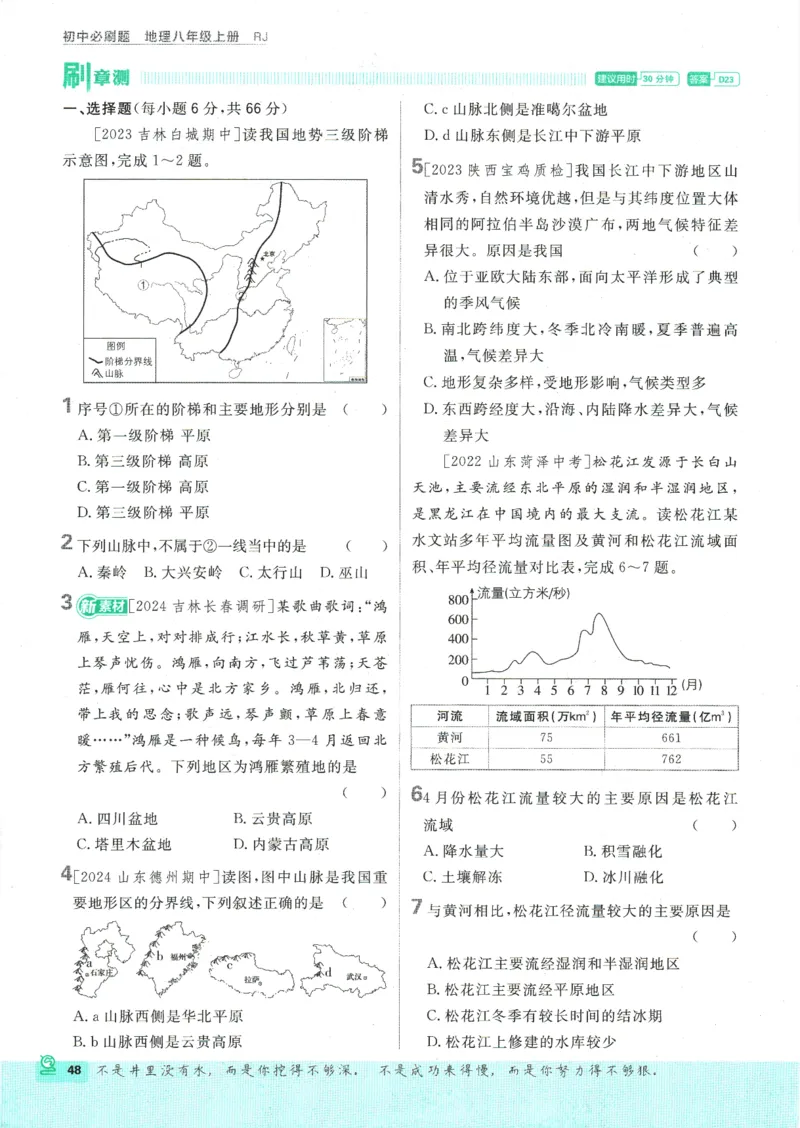 初中必刷题 地理八年级上册 RJ
刷章测
建议用时 30分钟 答案 D23
一、选择题(每小题6分,共66分)
[2023吉林白城期中]读我国地势三级阶梯
示意图,完成1~2题。
北京
①
②
图例
阶梯分界线
山脉
1 序号①所在的阶梯和主要地形分别是 ( )
A.第一级阶梯 平原
B.第三级阶梯 高原
C.第一级阶梯 高原
D.第三级阶梯 平原
2 下列山脉中,不属于②一线当中的是 ( )
A.秦岭 B.大兴安岭 C.太行山 D.巫山
3 新素材 [2024吉林长春调研]某歌曲歌词:“鸿
雁,天空上,对对排成行;江水长,秋草黄,草原
上琴声忧伤。鸿雁,向南方,飞过芦苇荡;天苍
茫,雁何往,心中是北方家乡。鸿雁,北归还,
带上我的思念;歌声远,琴声颤,草原上春意
暖……”鸿雁是一种候鸟,每年3—4月返回北
方繁殖后代。下列地区为鸿雁繁殖地的是
( )
A.四川盆地 B.云贵高原
C.塔里木盆地 D.内蒙古高原
4 [2024山东德州期中]读图,图中山脉是我国重
要地形区的分界线,下列叙述正确的是 ( )
a 石家庄 b 福州 c 拉萨 d 武汉
A.a山脉西侧是华北平原
B.b山脉西侧是云贵高原
C.c山脉北侧是准噶尔盆地
D.d山脉东侧是长江中下游平原
5 [2023陕西宝鸡质检]我国长江中下游地区山
清水秀,自然环境优越,但是与其纬度位置大体
相同的阿拉伯半岛沙漠广布,两地气候特征差
异很大。原因是我国 ( )
A.位于亚欧大陆东部,面向太平洋形成了典型
的季风气候
B.南北跨纬度大,冬季北冷南暖,夏季普遍高
温,气候差异大
C.地形复杂多样,受地形影响,气候类型多
D.东西跨经度大,沿海、内陆降水差异大,气候
差异大
[2022山东菏泽中考]松花江发源于长白山
天池,主要流经东北平原的湿润和半湿润地区,
是黑龙江在中国境内的最大支流。读松花江某
水文站多年平均流量图及黄河和松花江流域面
积、年平均径流量对比表,完成6~7题。
流量(立方米/秒)
800
600
400
200
0
1 2 3 4 5 6 7 8 9 10 11 12 (月)
河流 流域面积(万km²) 年平均径流量(亿m³)
黄河 75 661
松花江 55 762
6 4月份松花江流量较大的主要原因是松花江
流域 ( )
A.降水量大 B.积雪融化
C.土壤解冻 D.冰川融化
7 与黄河相比,松花江径流量较大的主要原因是
( )
A.松花江主要流经湿润和半湿润地区
B.松花江主要流经平原地区
C.松花江冬季有较长时间的结冰期
D.松花江上修建的水库较少
48 不是井里没有水,而是你挖得不够深。 不是成功来得慢,而是你努力得不够狠。